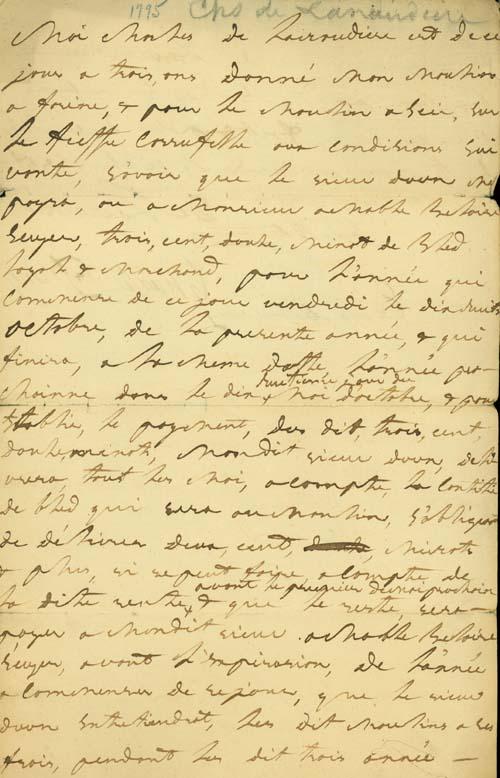 1795 Chs de Lanaudiere
Moi Charles de Lanaudiere est de ce
jour a trois, ans donné mon moulin
a farine, & pour le moulin a scie, sur
le fieffe aux condisions sui
vante, s'avoir que le sieur me
payra, ou a Monsieur
Ecuyer, trois, cent, douhe, minot de bled
loyal & Marchand, pour l'année qui
commense de ce jour vendredi le dix huit
octobre, de la presente année, & qui
finira, a la meme datte, l'année pro-
chainne dans le dix huitieme jour du Moi d'octobre, & pour
établie, le payment, des dit, trois, cent,
douhe minots, Mondit sieur déli
vrera, tout les Moi, a compte, la contité
de bled qui sera au Moulin, s'obligent
de délivrer deux, cent, minots
& plus, si se peut faire a compte de
la dite rente, avant le premier de mai prochain & que le reste, sera
payer a Mondit sieur
Ecuyer, avant l'expirasion, de l'année
a commenser de se jour, que le sieur
entretiendrat, les dit Moulins a ses
frais, pendant les dit trois année —